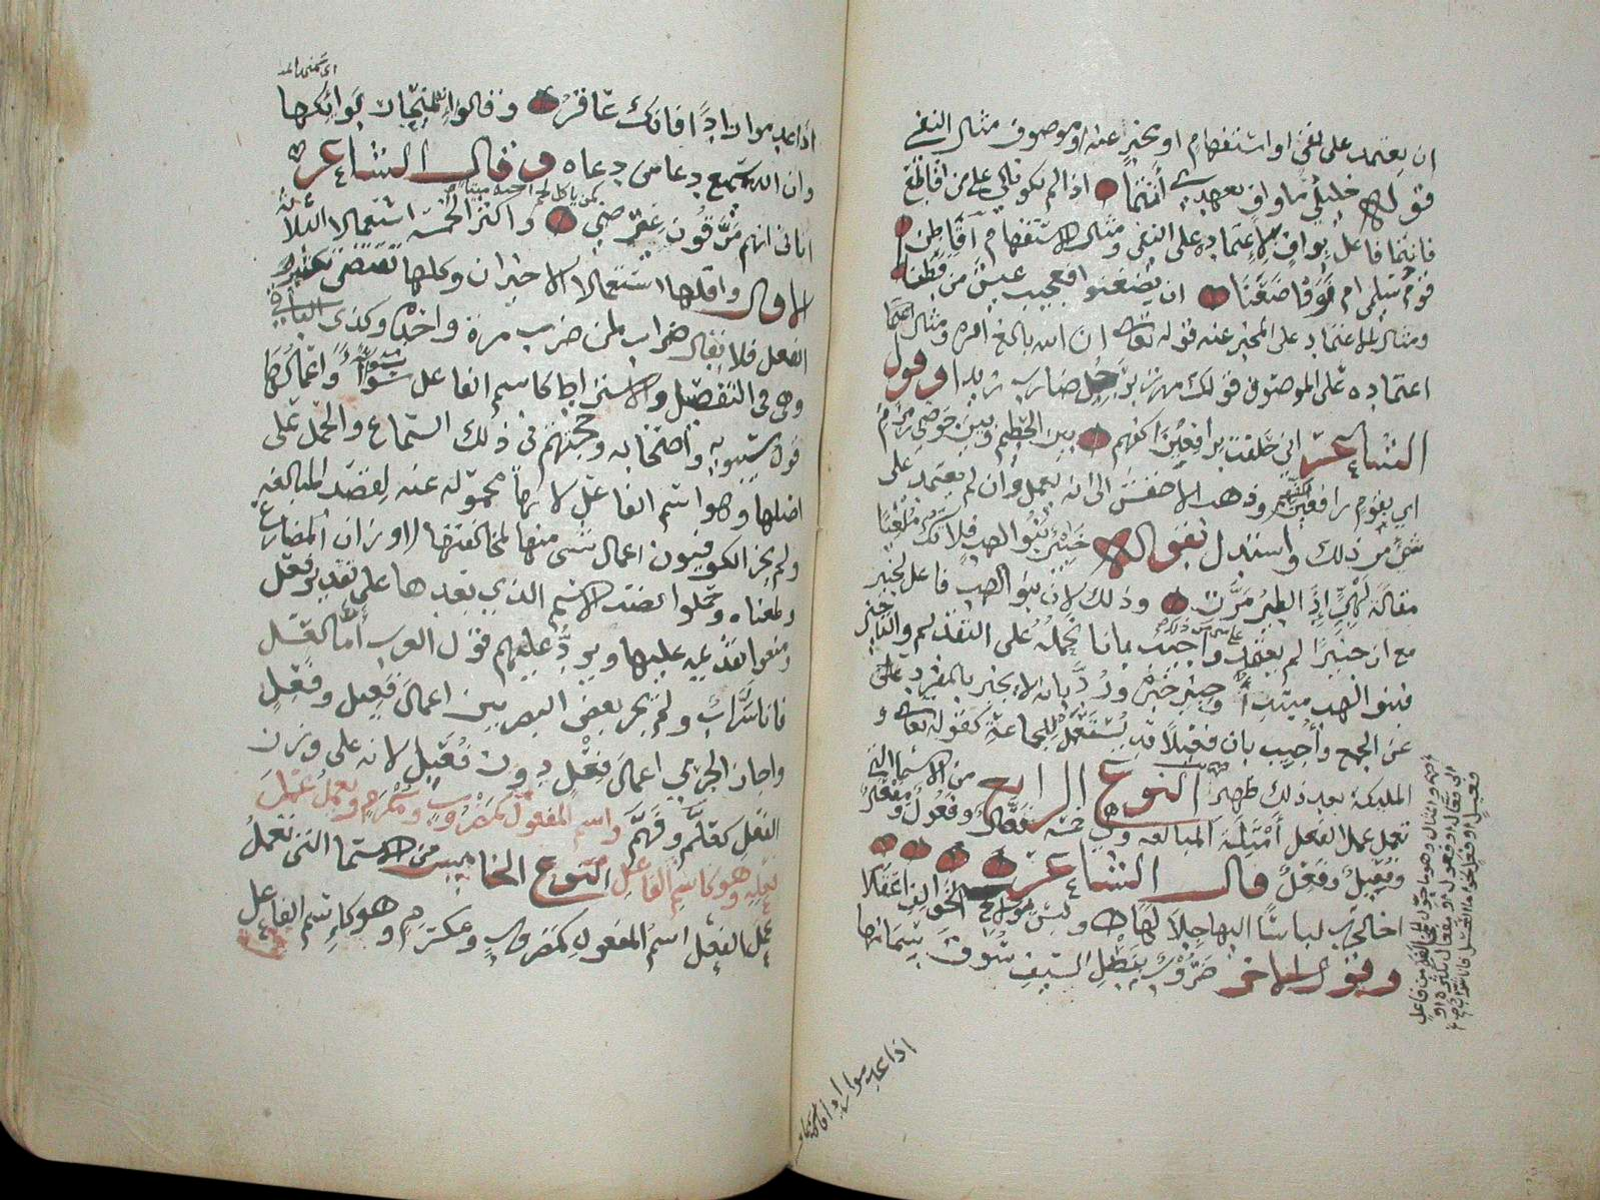 ان يعتمد على نفي او استفهام او مخبر عنه او موصوف مثال النفي
قوله خليلي ما واف بعهدي انتما اذا لم تكونا لي على من اقاطع
فانتما فاعل بواف لاعتماده على النفي ومثال الاستفهام اقاطن
قوم سلمى ام نووا ظعنا ان يظعنوا فعجيب عيش من قطنا
ومثال الاعتماد على المخبر عنه قوله تعالى ان الله بالغ امره ومثال
اعتماده على الموصوف قولك مررت برجل ضارب زيدا وقول
الشاعر اني حلفت برافعين اكفهم بين الحطيم وبين حوضي زمزم
اي بقوم رافعين وذهب الاخفش الى انه يعمل وان لم يعتمد على
شئ من ذلك واستدل بقوله خبير بنو لهب فلا تك ملغيا
مقالة لهبي اذا الطير مرت وذلك لان بنو لهب فاعل بخبير
مع ان خبيرا لم يعتمد واجيب بانا نحمله على التقديم والتاخير
فبنو لهب مبتدأ وخبير خبره ورد بانه لا يخبر بالمفرد
عن الجمع وأجيب بان فعيلا قد يستعمل للجماعة كقوله تعالى و
الملائكة بعد ذلك ظهير النوع الرابع من الاسما التي
تعمل عمل الفعل أمثلة المبالغة وهي خمسة فعال وفعول ومفعال
وفعيل وفعل قال الشاعر
اخا الحرب لباسا اليها جلالها وليس بولاج الخوالف اعقلا
وقول الاخر ضروب بنصل السيف سوق سمانها
اذا عدموا زادا فانك عاقر
اذا عدموا زادا فانك عاقر وقالوا انه لمنحار بوائكها
وان الله سميع دعا من دعاه وقال الشاعر
اتاني انهم مزقون عرضي واكثر الخمسة استعمالا الثلاثة
الاول واقلها استعمالا الاخيران وكلها تقتضي تكثير
الفعل فلا يقال ضراب لمن ضرب مرة واحدة وكذى الباقي
وهي في التفصيل والاشتراط كاسم الفاعل سواء واعمالها
قول سيبويه واصحابه وحجتهم في ذلك السماع والحمل على
اصلها وهو اسم الفاعل لانها محولة عنه لقصد المبالغة
ولم يجز الكوفيون اعمال شئ منها لمخالفتها لاوزان المضارع
ولمعناه وحملوا نصب الاسم الذي بعدها على تقدير فعل
ومنعوا تقديمه عليها ويرد عليهم قول العرب اما العسل
فانا شراب ولم يجز بعض البصريين اعمال فعيل وفعل
واجاز الجرمي اعمال فعل دون فعيل لانه على وزن
الفعل كعلم وفهم واسم المفعول كمضروب ومكرم ويعمل عمل
فعله وهو كاسم الفاعل النوع الخامس من الاسما التي تعمل
عمل الفعل اسم المفعول كمضروب ومكرم وهو كاسم الفاعل